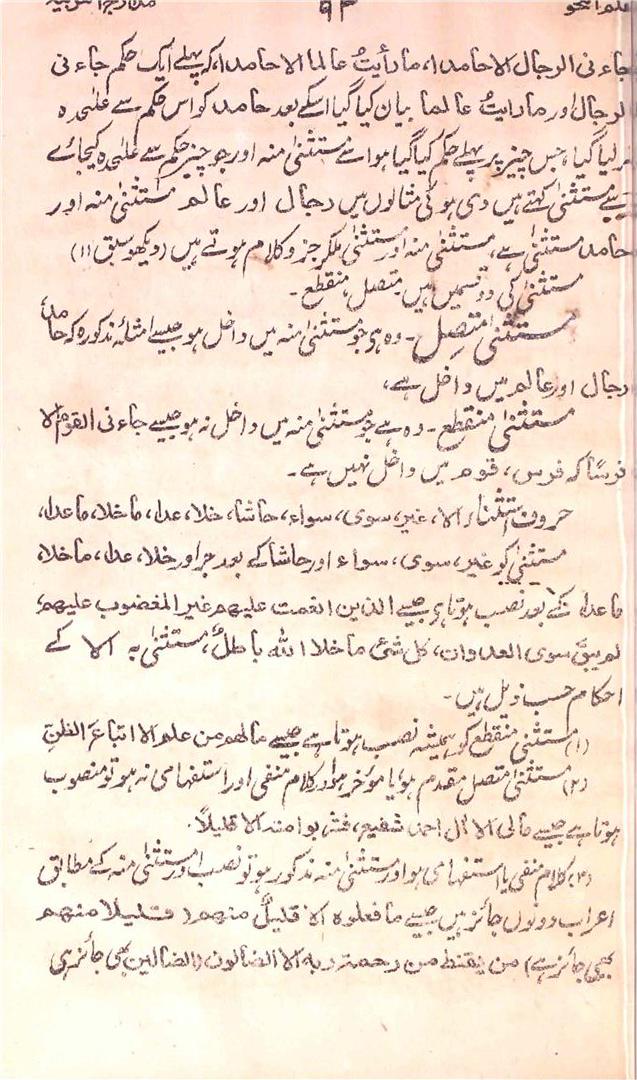 علم النحو ۹۳
جاءنی الرجال الا حامدا، مارأیتُ عالما الا حامدا، کہ پہلے ایک حکم جاءنی
الرجال اور مارایتُ عالما بیان کیا گیا اسکے بعد حامد کو اس حکم سے علٰحدہ
کرلیا گیا، جس چیز پر پہلے حکم کیا گیا ہو اسے مستثنیٰ منہ اور جو چیز حکم سے علٰحدہ کیجائے
اسے مستثنیٰ کہتے ہیں دی ہوئی مثالوں میں رجال اور عالم مستثنیٰ منہ اور
حامد مستثنیٰ ہے، مستثنیٰ منہ اور مستثنیٰ ملکر جزو کلام ہوتے ہیں (دیکھو سبق ۱۱)
مستثنیٰ کی دو قسمیں ہیں۔ متصل، منقطع۔
مستثنیٰ متصل۔ وہ ہی جو مستثنیٰ منہ میں داخل ہو جیسے امثلہ مذکورہ کہ حامد
رجال اور عالم میں داخل ہے،
مستثنیٰ منقطع۔ وہ ہے جو مستثنیٰ منہ میں داخل نہ ہو جیسے جاءنی القوم الا
فرسًا کہ فرس، قوم میں داخل نہیں ہے۔
حروف استثناء الا، غیر، سوی، سواء، حاشا، خلا، عدا، ماخلا، ماعدا،
مستثنیٰ کو غیر، سوی، سواء اور حاشا کے بعد جر اور خلا، عدا، ماخلا،
ماعدا کے بعد نصب ہوتا ہی جیسے الذین انعمت علیہم غیر المغضوب علیہم،
لم یبق سوی العدوان، کل شئ ماخلا اللہ باطلٌ، مستثنیٰ بہ الا کے
احکام حسب ذیل ہیں۔
(۱) مستثنیٰ منقطع کو ہمیشہ نصب ہوتا ہے جیسے مالهم من علم الا اتباع الظن
(۲) مستثنیٰ متصل مقدم ہو یا موٴخر ہو اور کلام منفی اور استفہامی نہ ہو تو منصوب
ہوتا ہے جیسے مالی الا اٰل احمد شفیع، فشربوا منه الا قلیلاً۔
(۳) کلام منفی یا استفہامی ہو اور مستثنیٰ منہ مذکور ہو تو نصب اور مستثنیٰ منہ کے مطابق
اعراب دونوں جائز ہیں جیسے مافعلوه الا قلیلٌ منهم (قلیلا منهم
بھی جائز ہے) من یقنط من رحمة ربه الا الضالون (الضالین بھی جائز ہی